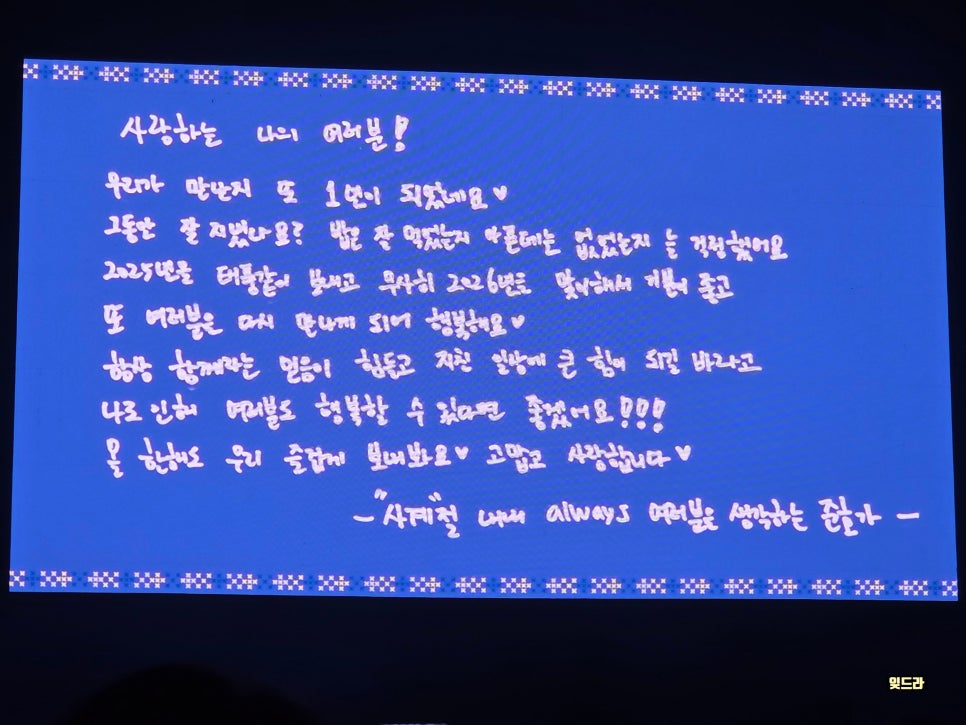 사랑하는 나의 여러분!
우리가 만난지 또 1년이 되었네요♥
그동안 잘 지냈나요? 밥은 잘 먹었는지 아픈데는 없었는지 늘 걱정했어요
2025년을 태풍같이 보내고 무사히 2026년을 맞이해서 기분이 좋고
또 여러분을 다시 만나게 되어 행복해요♥
항상 함께라는 믿음이 힘들고 지친 일상에 큰 힘이 되길 바라고
나로 인해 여러분도 행복할 수 있다면 좋겠어요!!!
올 한해도 우리 즐겁게 보내봐요♥ 고맙고 사랑합니다♥
- "사계"절 내내 always 여러분을 생각하는 준호가 -
잊드라